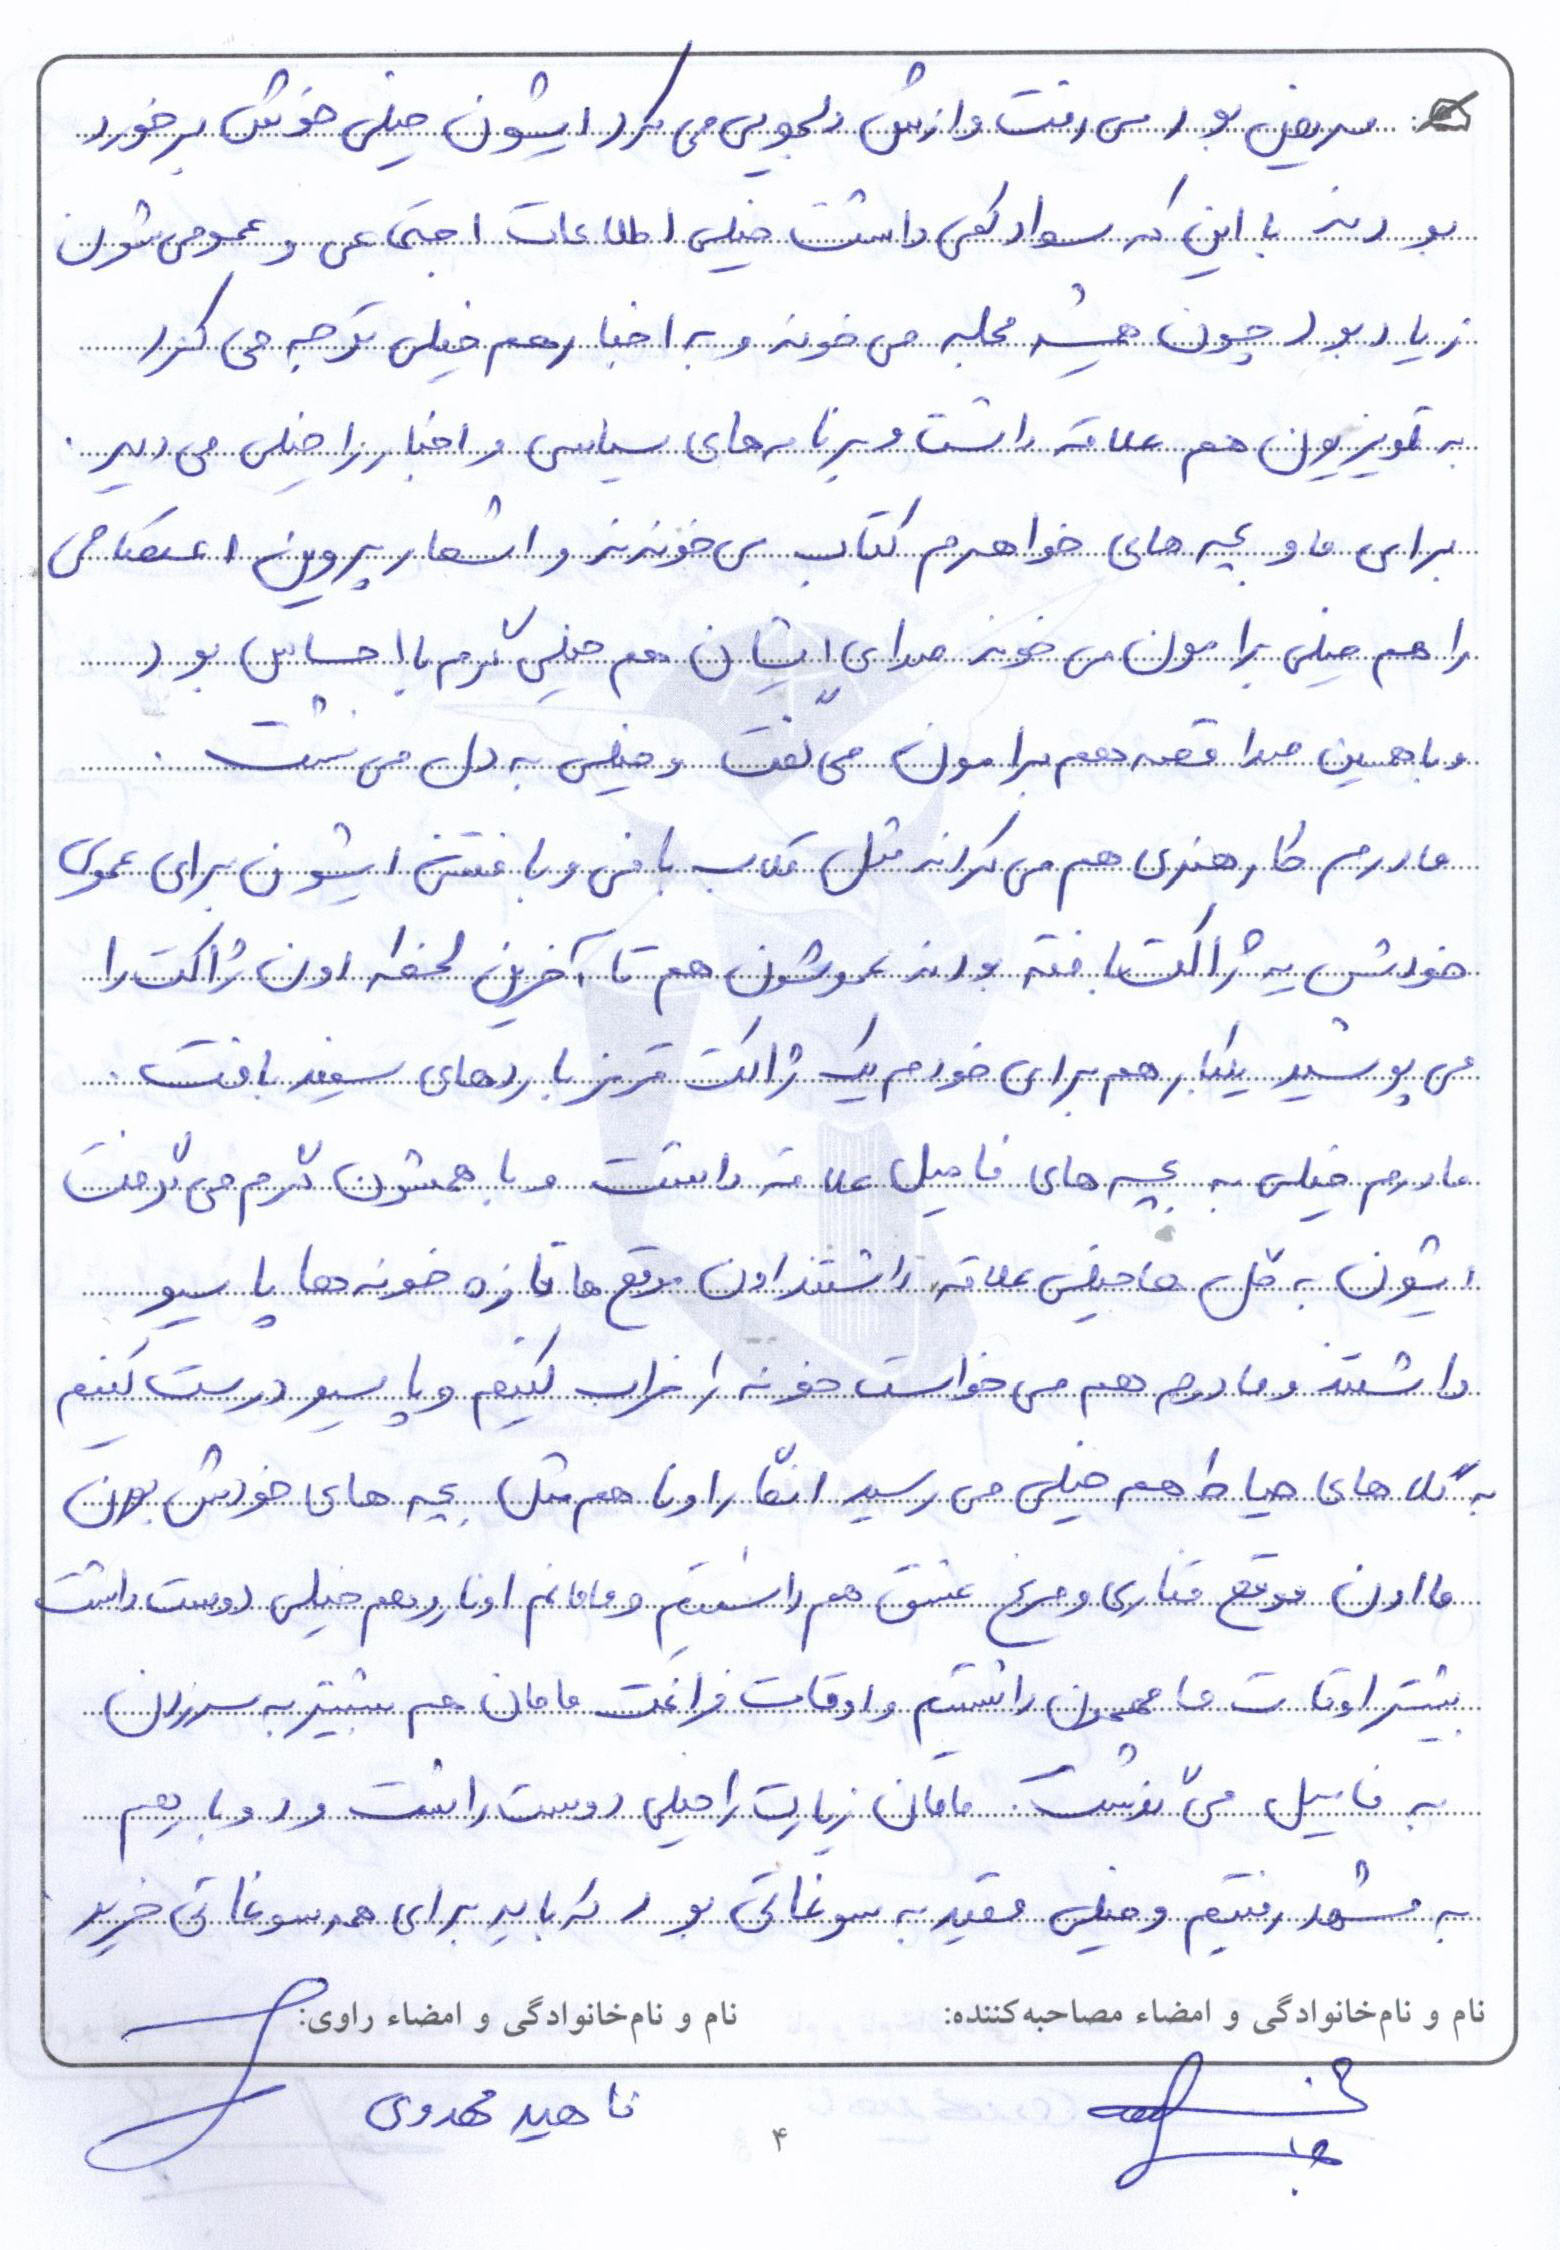 مریض بود می رفت و ازش دلجویی می کرد ایشون خیلی خوش برخورد
بودند با این که سواد کمی داشت خیلی اطلاعات اجتماعی و عمومی شون
زیاد بود چون همیشه مجله می خونه و به اخبار هم خیلی توجه می کرد
به تلویزیون هم علاقه داشت و برنامه های سیاسی و اخبار را خیلی می دید.
برای ما و بچه های خواهرم کتاب می خوندند و اشعار پروین اعتصامی
را هم خیلی برامون می خوند صدای ایشان هم خیلی گرم با احساس بود
و با همین صدا قصه هم برامون می گفت و خیلی به دل می نشت.
مادرم کار هنری هم می کردند مثل قلاب بافی و بافتنی ایشون برای عموی
خودش یه ژاکت بافته بودند عموشون هم تا آخرین لحظه اون ژاکت را
می پوشید یکبار هم برای خودم یک ژاکت قرمز با ردهای سفید بافت.
مادرم خیلی به بچه های فامیل علاقه داشت و با همشون گرم می گرفت
ایشون به گل ها خیلی علاقه داشتند اون موقع ها تازه خونه ها پاسیو
داشتند و مادرم هم می خواست خونه را خراب کنیم و پاسیو درست کنیم
به گل های حیاط هم خیلی می رسید انگار اونا هم مثل بچه های خودش بودن
ما اون موقع قناری و مرغ عشق هم داشتیم و مامانم اونارو هم خیلی دوست داشت
بیشتر اوقات ما مهمون داشتیم و اوقات فراغت مامان هم بیشتر به سرزدن
به فامیل می گذشت. مامان زیارت را خیلی دوست داشت و دوبار هم
به مشهد رفتیم و خیلی مقید به سوغاتی بود که باید برای همه سوغاتی خرید
نام و نام‌خانوادگی و امضاء مصاحبه‌کننده: نام و نام‌خانوادگی و امضاء راوی:
ناهید مهدوی
۴